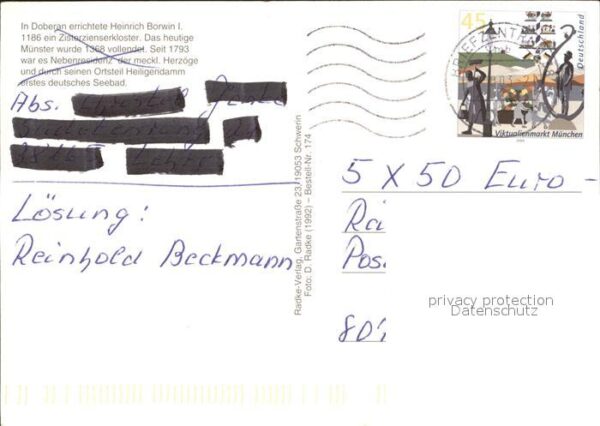 In Doberan errichtete Heinrich Borwin I.
1186 ein Zisterzienserkloster. Das heutige
Münster wurde 1368 vollendet. Seit 1793
war es Nebenresidenz der meckl. Herzöge
und durch seinen Ortsteil Heiligendamm
erstes deutsches Seebad.
Abs.
Lösung:
Reinhold Beckmann
Radke-Verlag, Gartenstraße 23, 19053 Schwerin
Foto: D. Radke (1992) – Bestell-Nr. 174
BRIEFZENTRUM
45
Deutschland
Viktualienmarkt München
5 x 50 Euro -
Rä
Pos
80
privacy protection
Datenschutz